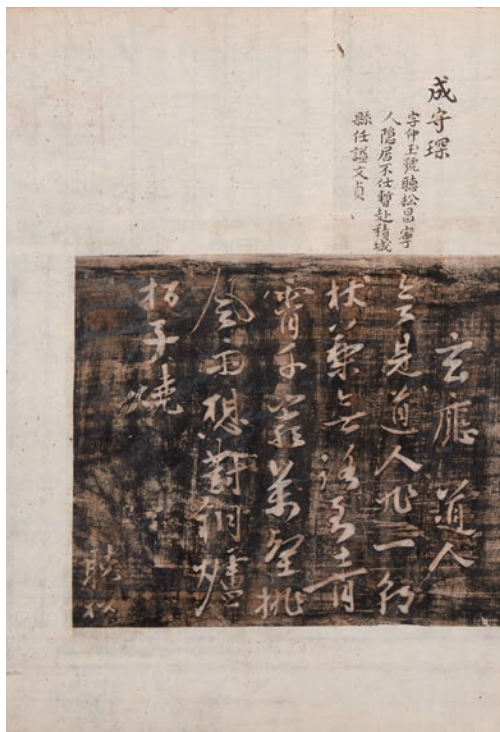 成守琛
字仲玉號聽松昌寧
人隱居不仕暫赴積城
縣任謚文貞
玄應道人
道人非一朝
杖藜無路到青
霄千巖萬壑排
風雨想對銅爐
栢子燒
聽松